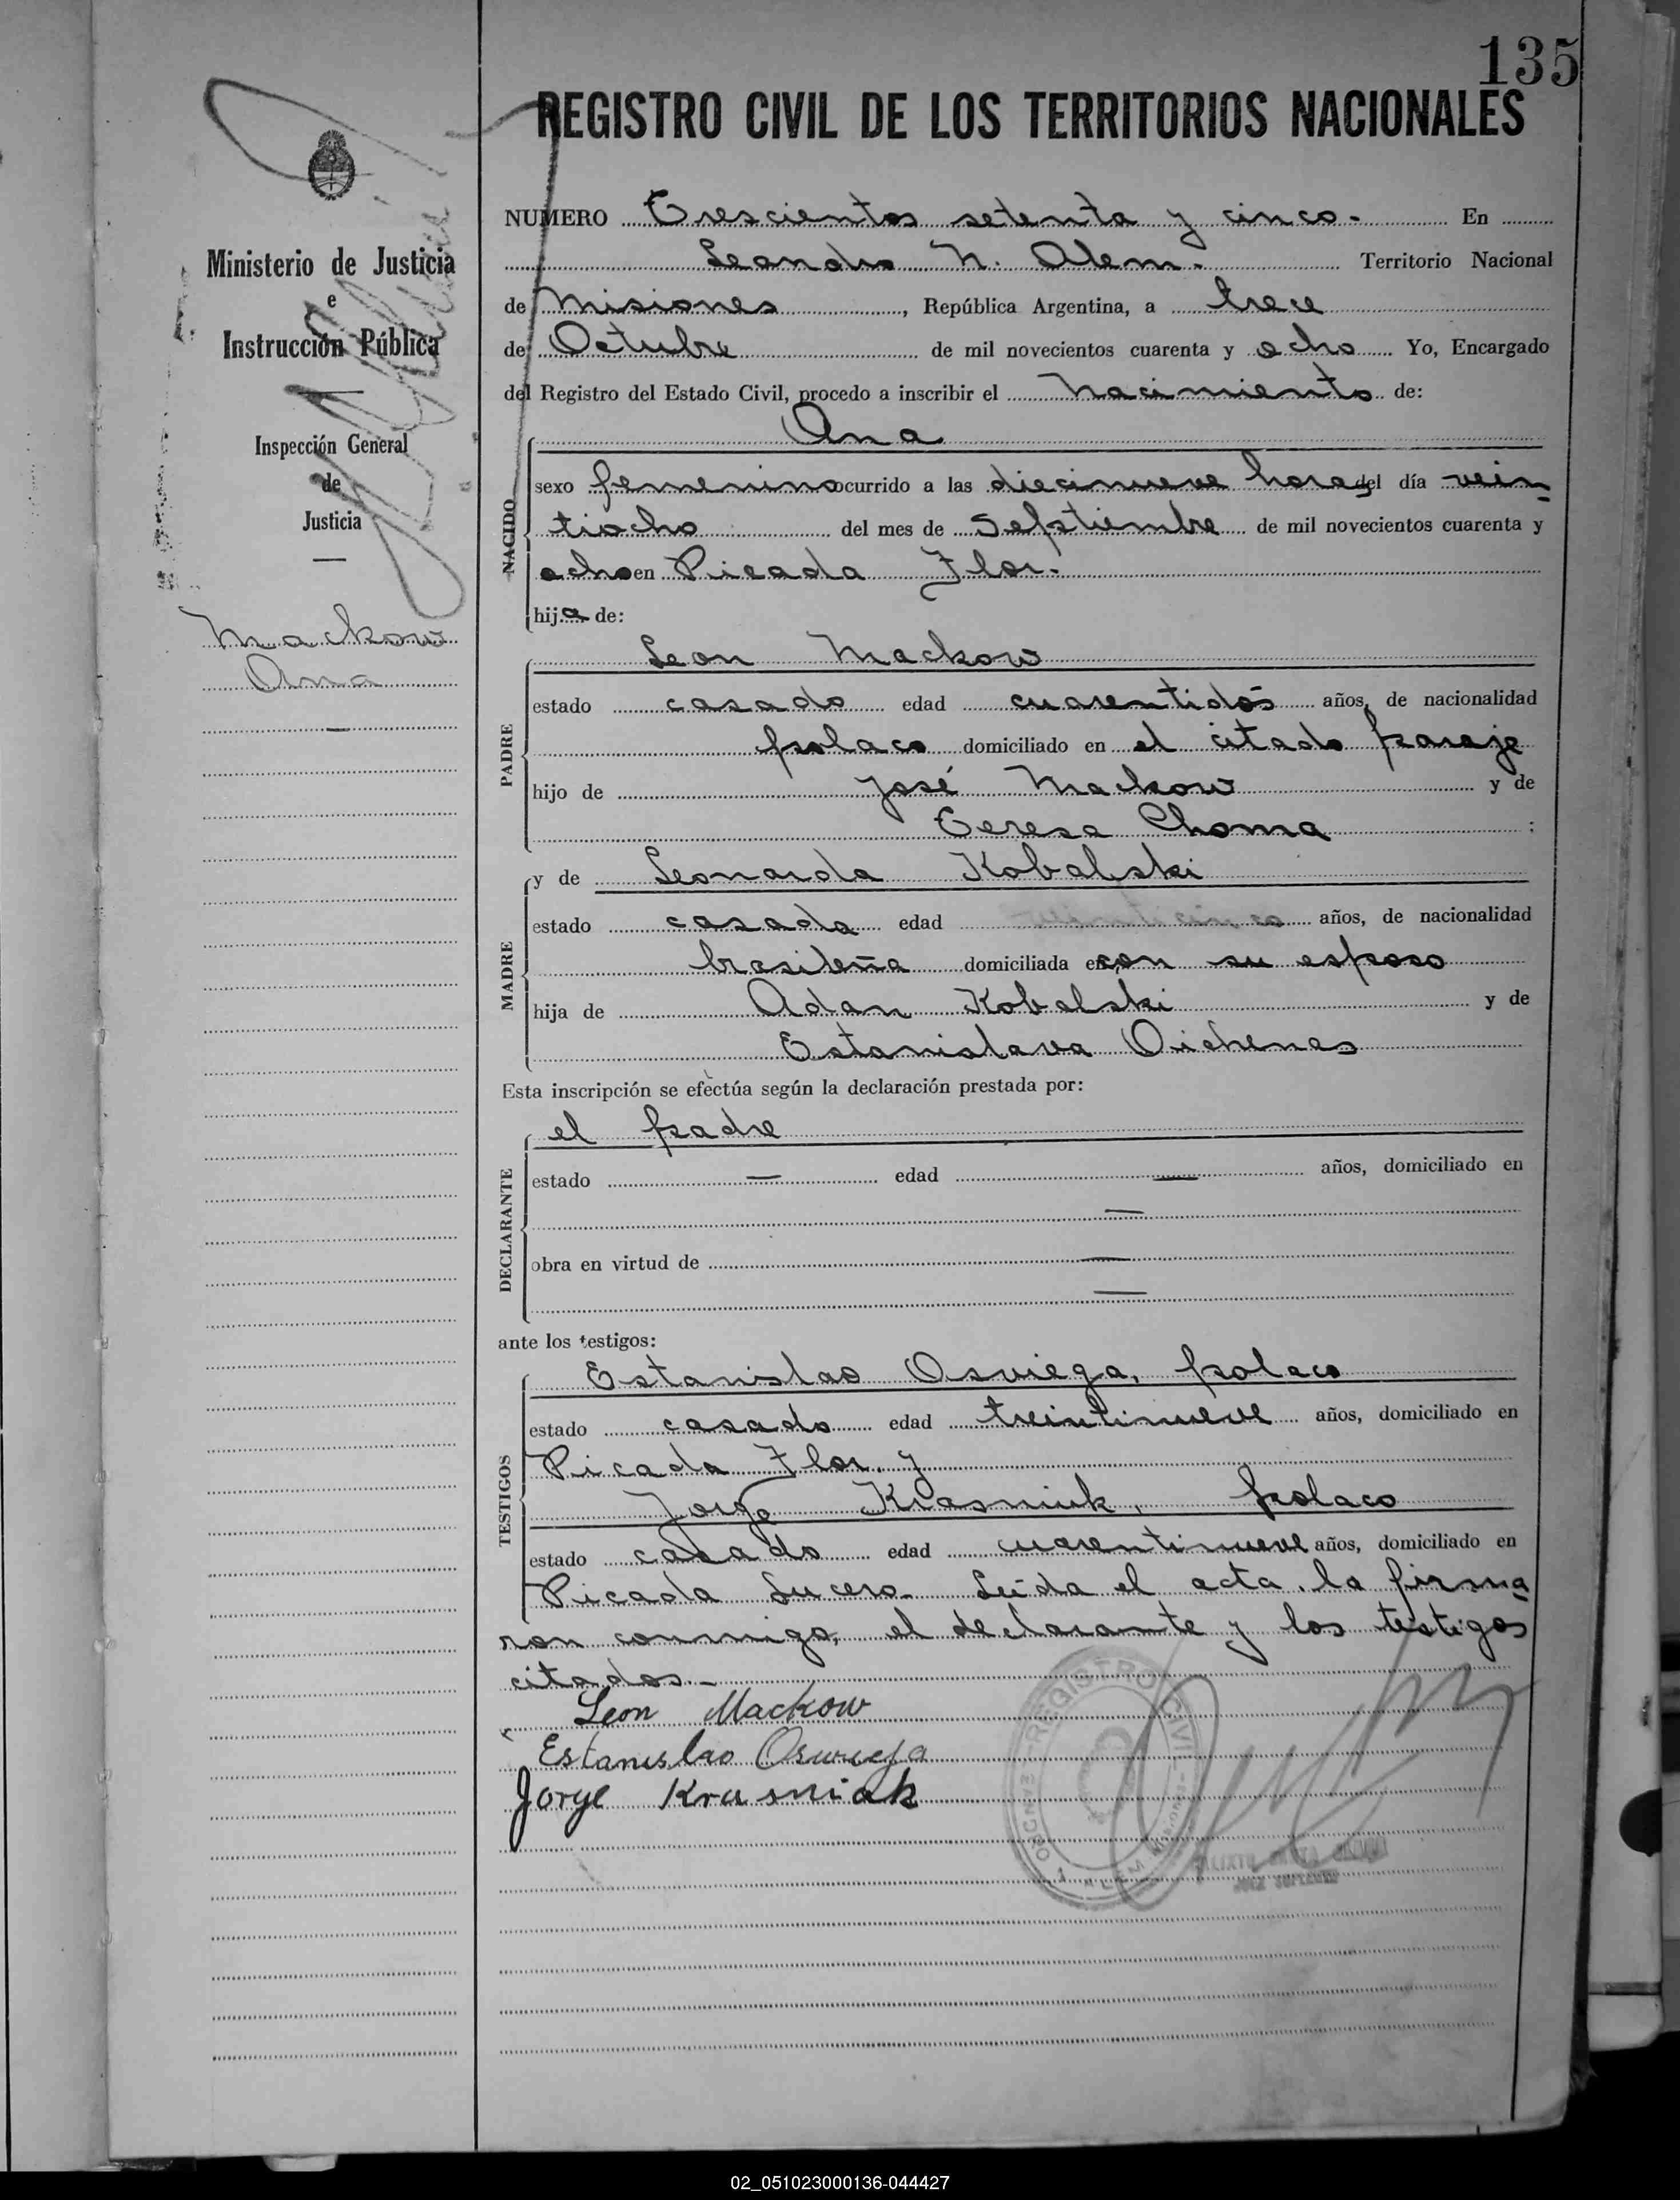 135
REGISTRO CIVIL DE LOS TERRITORIOS NACIONALES
Ministerio de Justicia
e
Instrucción Pública
Inspección General
de
Justicia
Mackow
Ana
NUMERO Trescientos setenta y cinco.- En
Leandro N. Alem.- Territorio Nacional
de Misiones, República Argentina, a trece
de Octubre de mil novecientos cuarenta y ocho Yo, Encargado
del Registro del Estado Civil, procedo a inscribir el nacimiento de:
NACIDO
Ana
sexo femenino ocurrido a las diecinueve horas del día vein
tiocho del mes de Septiembre de mil novecientos cuarenta y
ocho en Picada Flor.
hija de:
PADRE
Leon Mackow
estado casado edad cuarentidós años, de nacionalidad
polaco domiciliado en el citado paraje
hijo de José Mackow y de
Teresa Choma ;
MADRE
y de Leonarda Kobalski
estado casada edad veinticinco años, de nacionalidad
brasileña domiciliada en con su esposo
hija de Adan Kobalski y de
Estanislava Oichenas
Esta inscripción se efectúa según la declaración prestada por:
DECLARANTE
el padre
estado — edad — años, domiciliado en
—
obra en virtud de —
—
ante los testigos:
TESTIGOS
Estanislao Osviega, polaco
estado casado edad treintinueve años, domiciliado en
Picada Flor, y
Jorge Krasniuk, polaco
estado casado edad cuarentinueve años, domiciliado en
Picada Lucero. Leída el acta, la firma
ron conmigo, el declarante y los testigos
citados.-
Leon Mackow
Estanislao Oswieja
Jorge Krasniuk
REGISTRO CIVIL
02_051023000136-044427